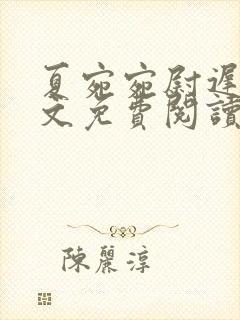 夏宛宛尉遲
文免費閱讀
陳麗淳